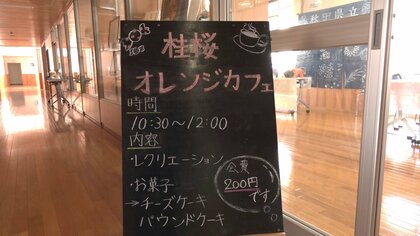 桂桜
オレンジカフェ
時間
10:30～12:00
内容
・レクリエーション
・お菓子
→チーズケーキ
パウンドケーキ
会費
200円
です